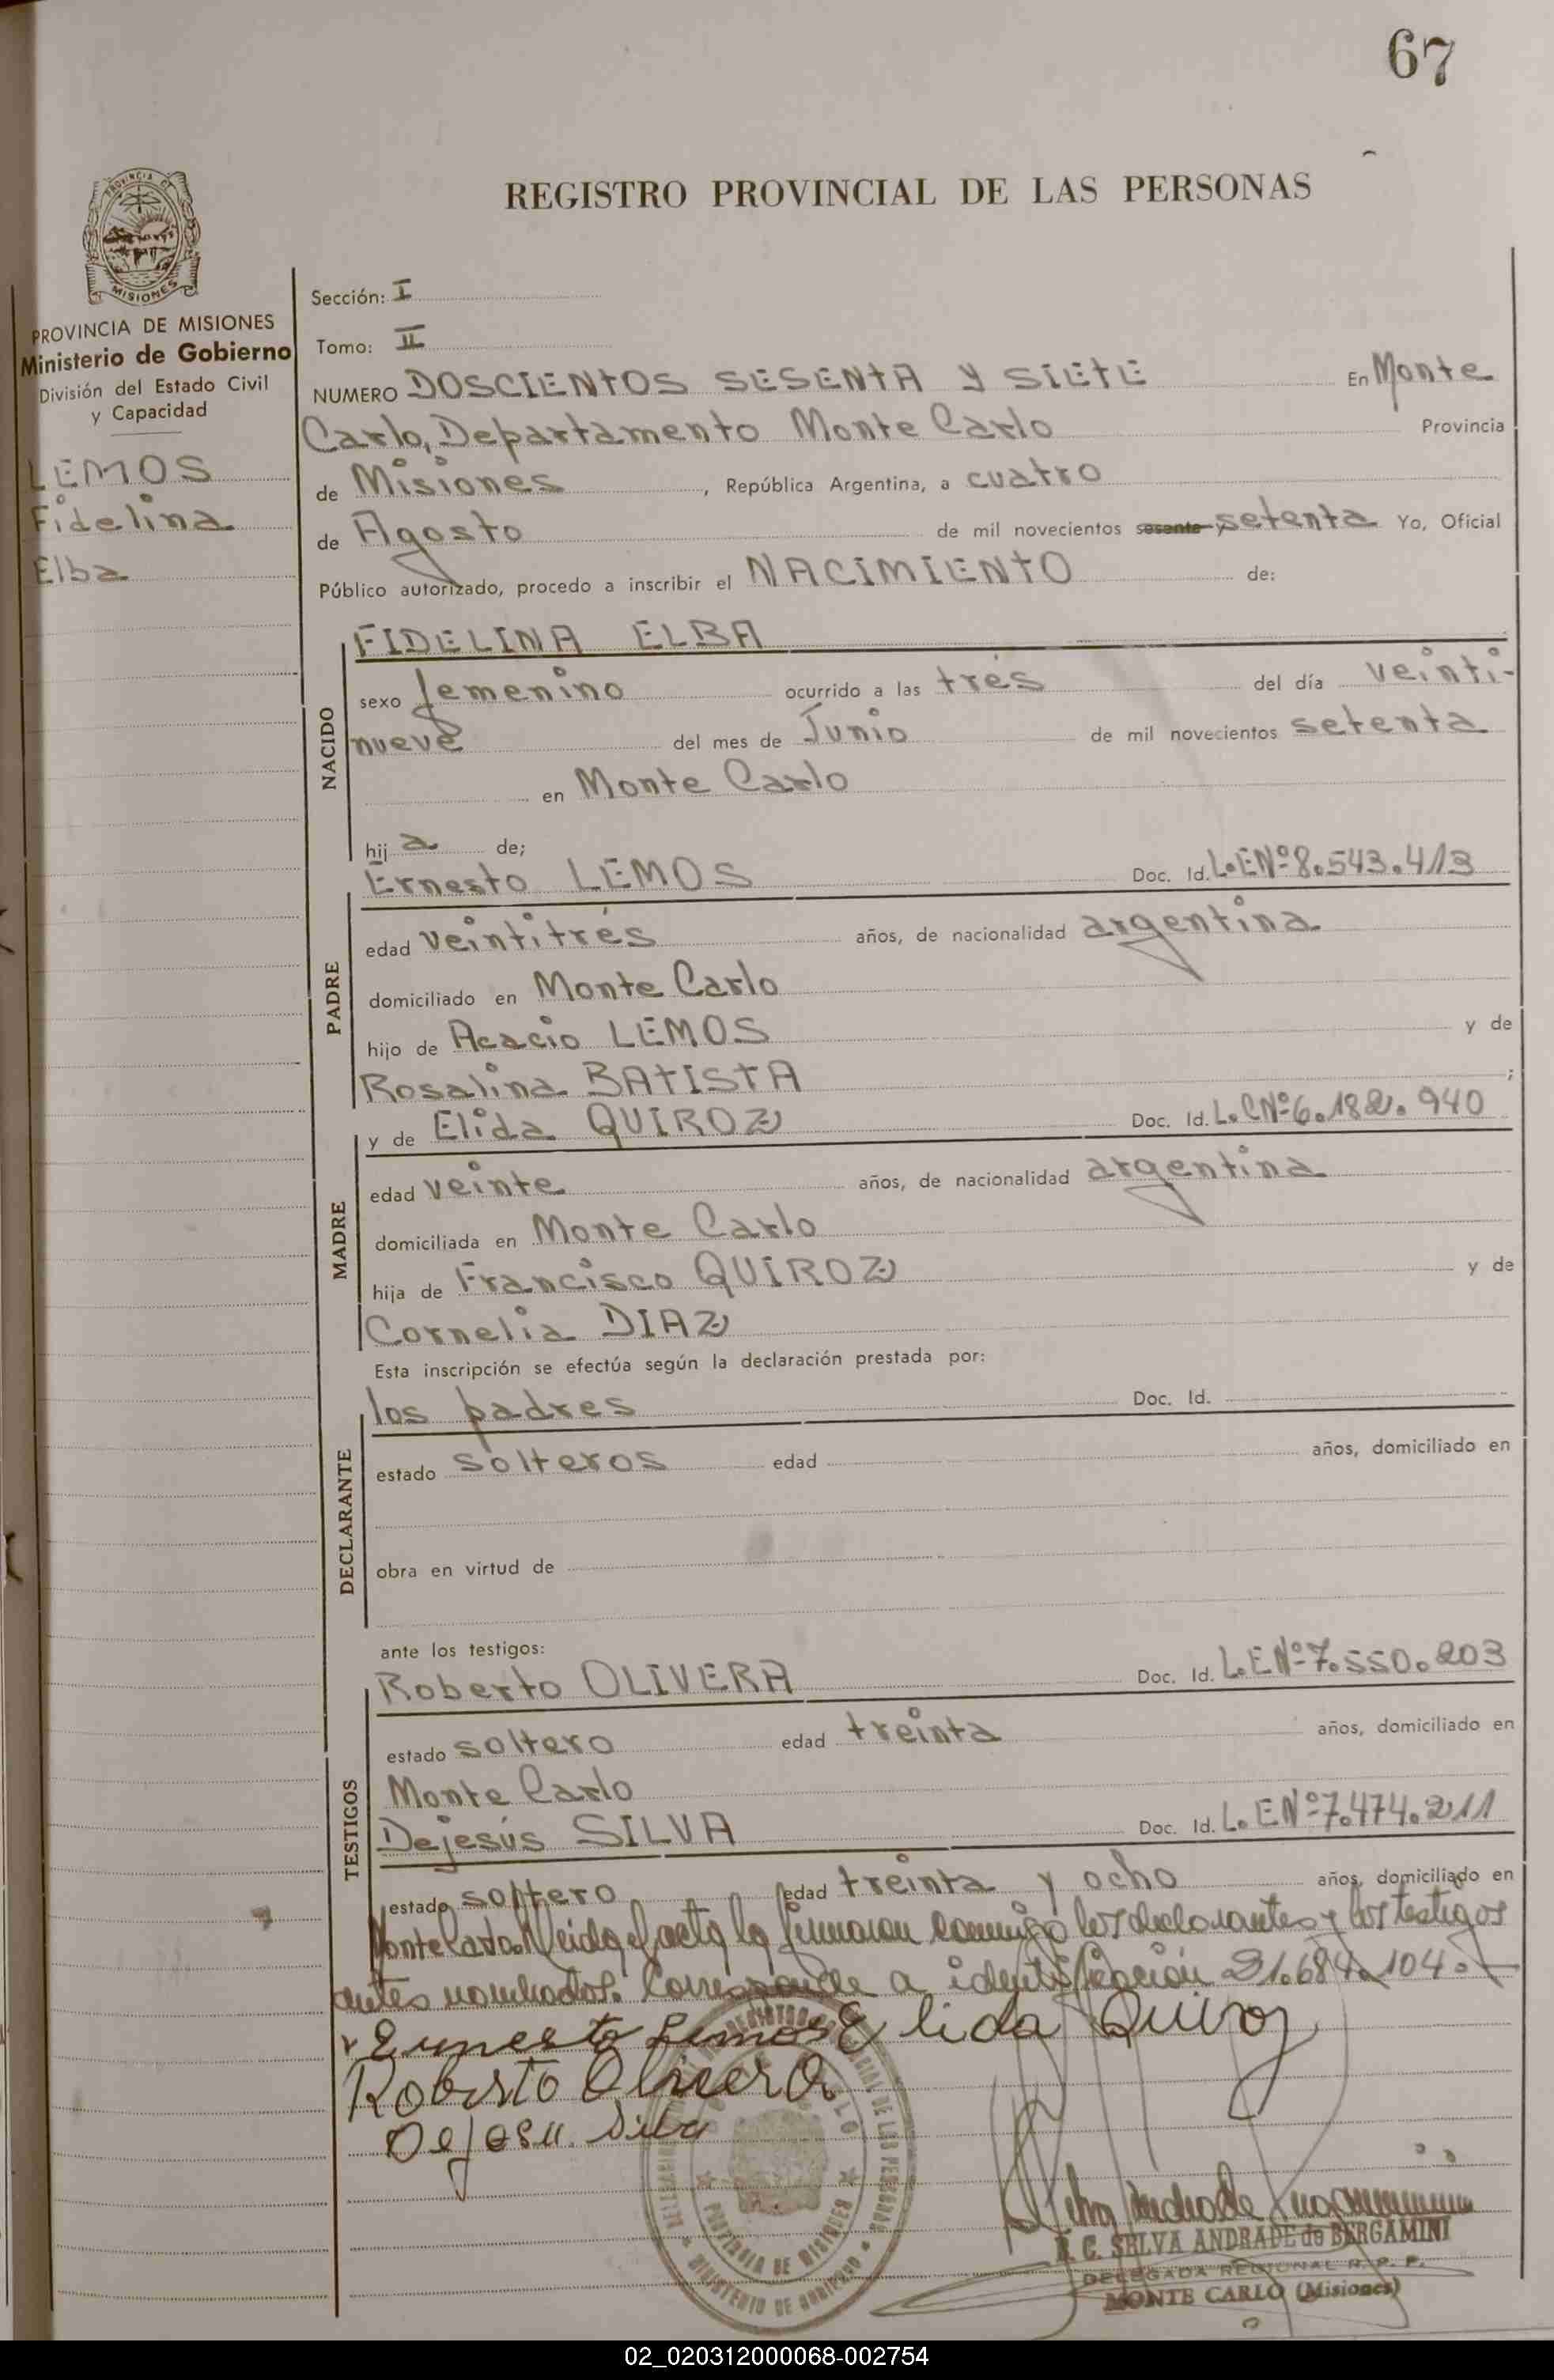 67
PROVINCIA DE
MISIONES
REGISTRO PROVINCIAL DE LAS PERSONAS
PROVINCIA DE MISIONES
Ministerio de Gobierno
División del Estado Civil
y Capacidad
LEMOS
Fidelina
Elba
Sección: I
Tomo: II
NUMERO DOSCIENTOS SESENTA Y SIETE En Monte
Carlo, Departamento Monte Carlo Provincia
de Misiones, República Argentina, a cuatro
de Agosto de mil novecientos sesenta y setenta Yo, Oficial
Público autorizado, procedo a inscribir el NACIMIENTO de:
FIDELINA ELBA
NACIDO
sexo femenino ocurrido a las tres del día veinti-
nueve del mes de Junio de mil novecientos setenta
en Monte Carlo
hij a de;
Ernesto LEMOS Doc. Id. L.E Nº 8.543.413
PADRE
edad veintitrés años, de nacionalidad argentina
domiciliado en Monte Carlo
hijo de Acacio LEMOS y de
Rosalina BATISTA ;
y de Elida QUIROZ Doc. Id. L.C Nº 6.182.940
MADRE
edad veinte años, de nacionalidad argentina
domiciliada en Monte Carlo
hija de Francisco QUIROZ y de
Cornelia DIAZ
Esta inscripción se efectúa según la declaración prestada por:
los padres Doc. Id.
DECLARANTE
estado solteros edad años, domiciliado en
obra en virtud de
ante los testigos:
Roberto OLIVERA Doc. Id. L.E Nº 7.550.203
TESTIGOS
estado soltero edad treinta años, domiciliado en
Monte Carlo
Dejesús SILVA Doc. Id. L.E Nº 7.474.211
estado soltero edad treinta y ocho años, domiciliado en
Monte Carlo. Leida el acta la firmaron conmigo los declarantes y los testigos
antes nombrados. Corresponde a identificación 21.684.104.-
Ernesto Lemos Elida Quiroz
Roberto Olivera
Dejesu Silva
PROVINCIA DE MISIONES
R. C. SELVA ANDRADE de BERGAMINI
DELEGADA REGIONAL R. P. P.
MONTE CARLO (Misiones)
02_020312000068-002754